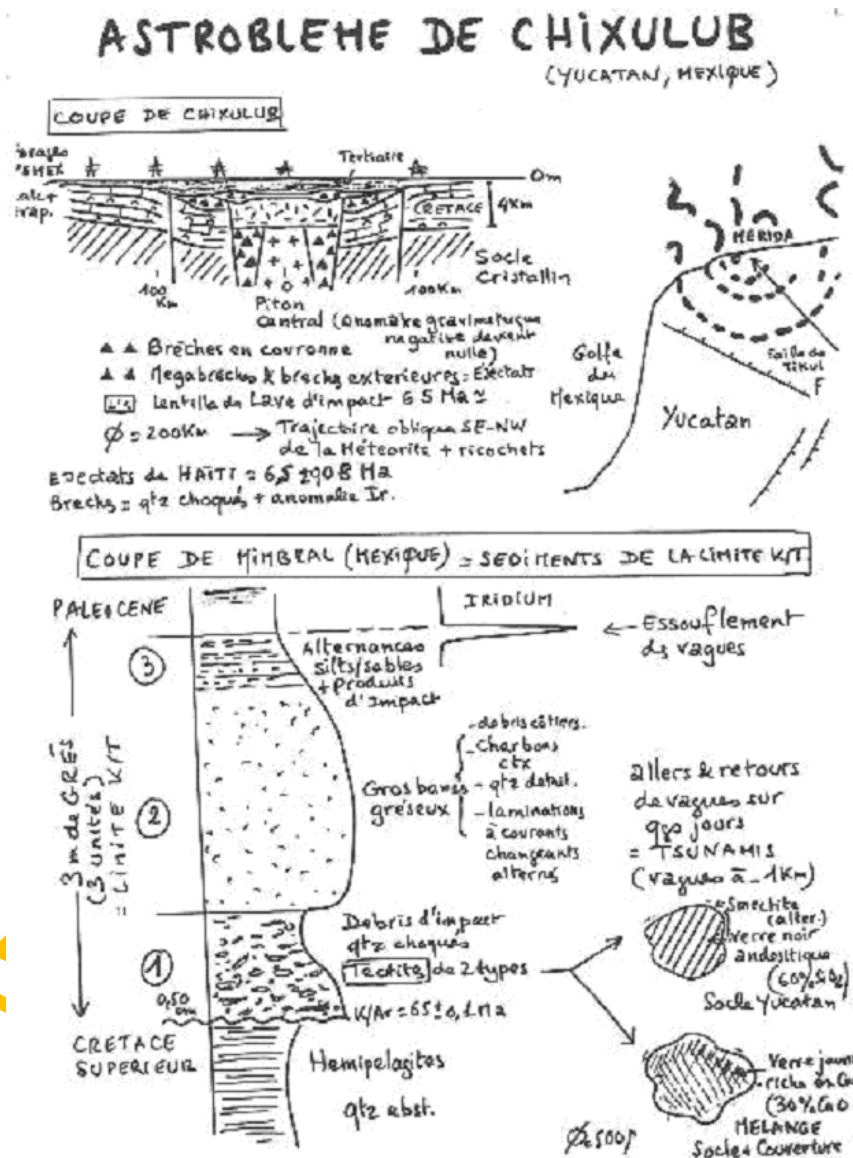 ASTROBLEME DE CHIXULUB
(YUCATAN, MEXIQUE)
COUPE DE CHIXULUB
Tertiaire
0m
CRETACE
4Km
Socle
Cristallin
100
Km
100Km
Piton
Central (anomalie gravimetrique
negative devient
nulle)
Brèches en couronne
Megabrèches & brechs exterieures = Ejectats
Lentille de Lave d'impact 65 Ma
Ø = 200Km → Trajectoire oblique SE-NW
de la Météorite + ricochets
Ejectats de HAÏTI = 6,5 ± 0,08 Ma
Brechs = qtz choqués + anomalie Ir.
MERIDA
Golfe
du
Mexique
Faille de
Tikul
F
Yucatan
COUPE DE MIMBRAL (MEXIQUE) = SEDIMENTS DE LA LIMITE K/T.
PALEOCENE
IRIDIUM
← Essouflement
ds vagues
3
Alternances
silts/sables
+ Produits
d'Impact
3m de GRÉS
(3 unités)
= LIMITE K/T
2
Gros bancs
gréseux
- debris côtiers.
- Charbons
ctx
- qtz detrit.
- laminations
à courants
changeants
alternés
allers & retours
de vagues sur
qqs jours
= TSUNAMIS
(vagues à ~1Km)
1
Debris d'impact
qtz choqués
Tectite de 2 types
K/Ar = 65 ± 0,1 Ma
0,50
Smectite
(alter.)
verre noir
andesitique
(60% SiO2)
Socle Yucatan
CRETACE
SUPERIEUR
Hemipelagites
qtz abst.
Verre jaune
riche en Ca
(30% CaO
MELANGE
Socle + Couverture